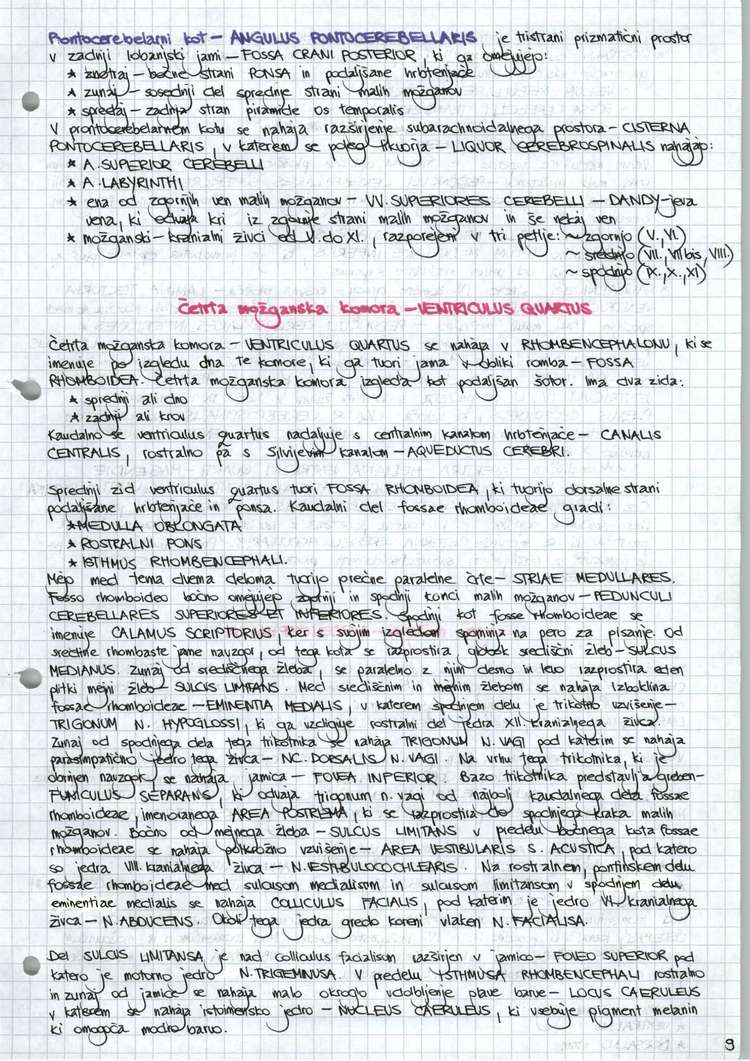 Prontocerebelarni kot - ANGULUS PONTOCEREBELLARIS je tristrani prizmatični prostor
v zadnji lobanjski jami - FOSSA CRANI POSTERIOR, ki ga omejujejo:
* znotraj - bočne strani PONSA in podaljšane hrbtenjače
* zunaj - sosednji del sprednje strani malih možganov
* spredaj - zadnja stran piramide os temporalis
V prontocerebelarnem kotu se nahaja razširjenje subarachnoidalnega prostora - CISTERNA
PONTOCEREBELLARIS, v katerem se poleg likvorja - LIQUOR CEREBROSPINALIS nahajajo:
* A. SUPERIOR CEREBELLI
* A. LABYRINTHI
* ena od zgornjih ven malih možganov - VV. SUPERIORES CEREBELLI - DANDY-jeva
vena, ki odvaja kri iz zgornje strani malih možganov in še nekaj ven
* možganski - kranialni živci od V. do XI., razporejeni v tri petlje: ~ zgornjo (V., VI.)
~ srednjo (VII., VII bis, VIII.)
~ spodnjo (IX., X., XI)
Četrta možganska komora - VENTRICULUS QUARTUS
Četrta možganska komora - VENTRICULUS QUARTUS se nahaja v RHOMBENCEPHALONU, ki se
imenuje po izgledu dna te komore, ki ga tvori jama v obliki romba - FOSSA
RHOMBOIDEA. Četrta možganska komora izgleda kot podaljšan šotor. Ima dva zida:
* sprednji ali dno
* zadnji ali krov
Kaudalno se ventriculus quartus nadaljuje s centralnim kanalom hrbtenjače - CANALIS
CENTRALIS, rostralno pa s Silvijevim kanalom - AQUEDUCTUS CEREBRI.
Sprednji zid ventriculus quartus tvori FOSSA RHOMBOIDEA, ki tvorijo dorsalne strani
podaljšane hrbtenjače in ponsa. Kaudalni del fossae rhomboideae gradi:
* MEDULLA OBLONGATA
* ROSTRALNI PONS
* ISTHMUS RHOMBENCEPHALI.
Mejo med tema dvema deloma tvorijo prečne paralelne črte - STRIAE MEDULLARES.
Fosso rhomboideo bočno omejujejo zgornji in spodnji konci malih možganov - PEDUNCULI
CEREBELLARES SUPERIORES ET INFERIORES. Spodnji kot fosse rhomboideae se
imenuje CALAMUS SCRIPTORIUS, ker s svojim izgledom spominja na pero za pisanje. Od
sredine rhombaste jame navzgor, od tega kota se razprostira globok središčni žleb - SULCUS
MEDIANUS. Zunaj od središčnega žleba, se paralelno z njim desno in levo razprostira eden
plitki mejni žleb - SULCUS LIMITANS. Med središčnim in mejnim žlebom se nahaja izboklina
fossae rhomboideae - EMINENTIA MEDIALIS, v katerem spodnjem delu je trikotno uzvišenje -
TRIGONUM N. HYPOGLOSSI, ki ga uzdiguje rostralni del jedra XII. kranialnega živca.
Zunaj od spodnjega dela tega trikotnika se nahaja TRIGONUM N. VAGI pod katerim se nahaja
parasimpatično jedro tega živca - NC. DORSALIS N. VAGI. Na vrhu tega trikotnika, ki je
obrnjen navzgor, se nahaja jamica - FOVEA INFERIOR. Bazo trikotnika predstavlja greben -
FUNICULUS SEPARANS, ki odvaja trigonum n. vagi od najbolj kaudalnega dela fossae
rhomboideae, imenovanega AREA POSTREMA, ki se razprostira do spodnjega kraka malih
možganov. Bočno od mejnega žleba - SULCUS LIMITANS v predelu bočnega kota fossae
rhomboideae se nahaja polkrožno vzvišenje - AREA VESTIBULARIS S. ACUSTICA, pod katero
so jedra VIII. kranialnega živca - N. VESTIBULOCOCHLEARIS. Na rostralnem, pontinskem delu
fossae rhomboideae med sulcusom medialisom in sulcusom limitansom v spodnjem delu
eminentiae medialis se nahaja COLLICULUS FACIALIS, pod katerim je jedro VI. kranialnega
živca - N. ABDUCENS. Okoli tega jedra gredo koreni vlaken N. FACIALISA.
Del SULCUS LIMITANSA je nad colliculus facialisom razširjen v jamico - FOVEO SUPERIOR pod
katero je motorno jedro N. TRIGEMINUSA. V predelu YSTHMUSA RHOMBENCEPHALI rostralno
in zunaj od jamice se nahaja malo okroglo vdolbljenje plave barve - LOCUS CAERULEUS
v katerem se nahaja istoimensko jedro - NUCLEUS CAERULEUS, ki vsebuje pigment melanin
ki omogoča modro barvo.
9